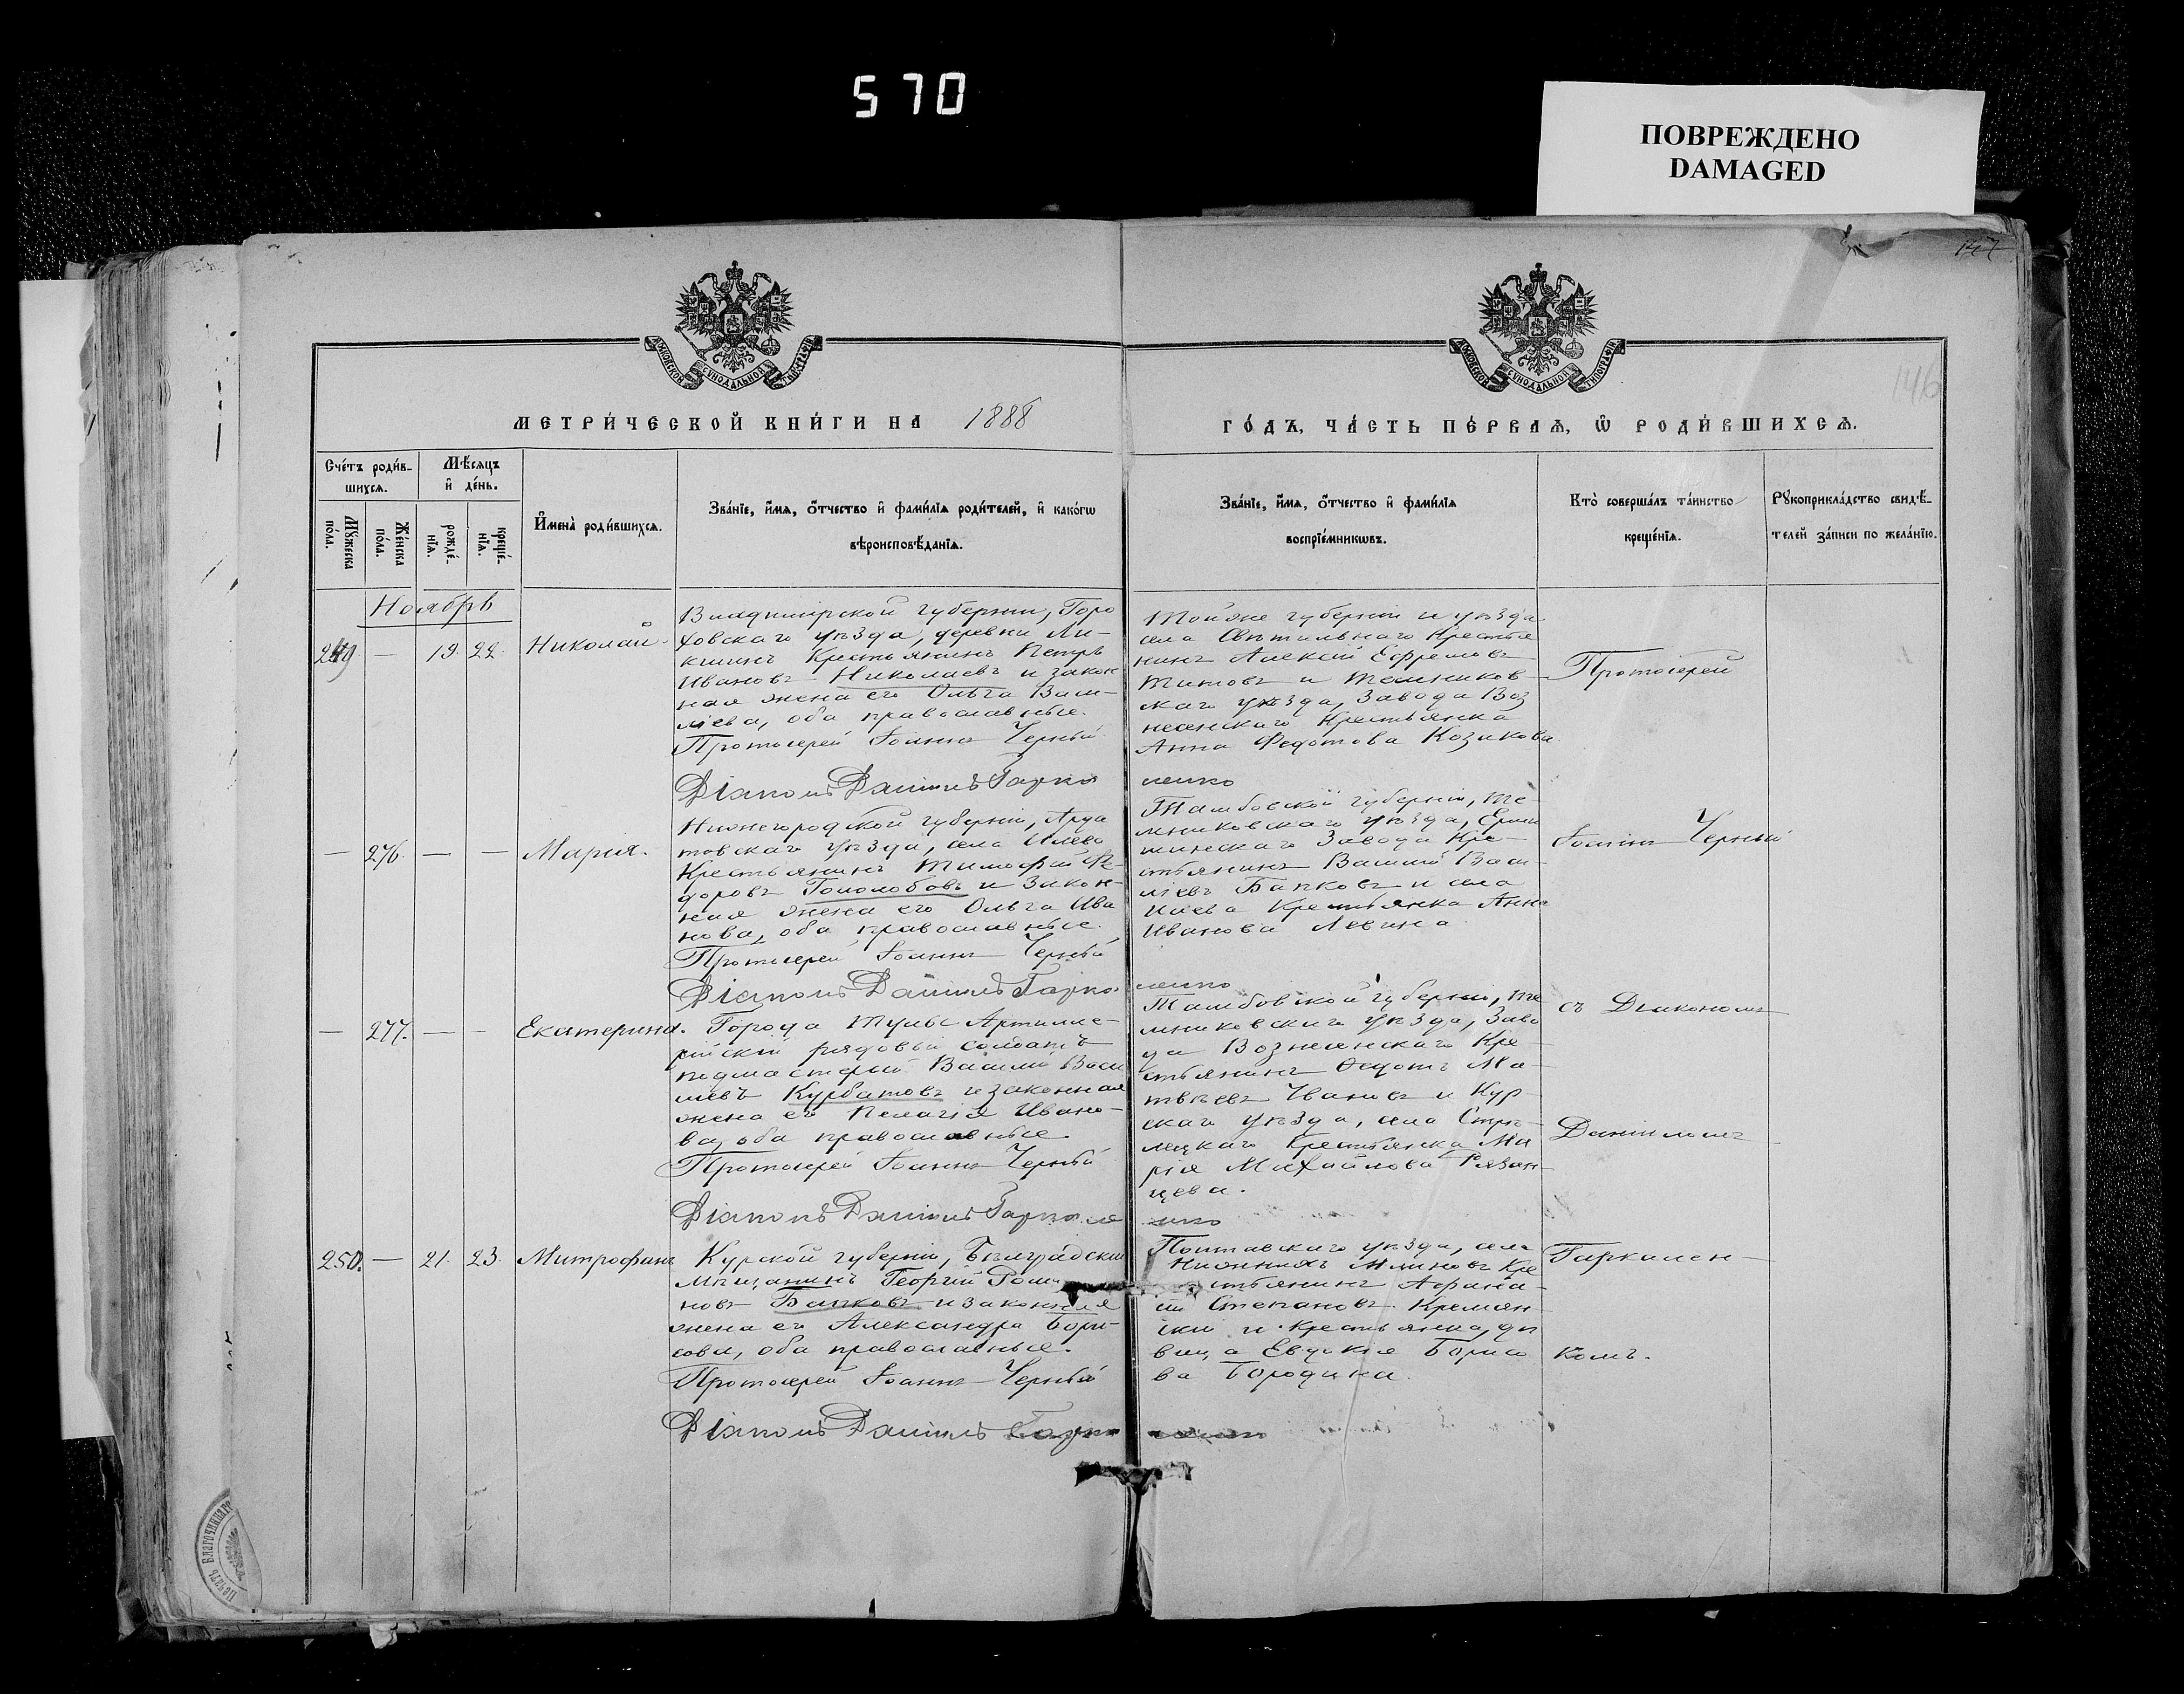 570
ПОВРЕЖДЕНО
DAMAGED
147
146
МОСКОВСКОЙ СѴНОДАЛЬНОЙ ТИПОГРАФІИ
МОСКОВСКОЙ СѴНОДАЛЬНОЙ ТИПОГРАФІИ
МЕТРИ́ЧЕСКОЙ КНИ́ГИ НА 1888
ГО́ДЪ, ЧА́СТЬ ПЕ́РВАѦ, Ѡ РОДИ́ВШИХСѦ.
Сче́тъ роди́в-
шихсѧ.
Мꙋ́жеска по́ла.
Же́нска по́ла.
Мѣ́сѧцъ
и҆ де́нь.
рожде́-
нїѧ.
креще́-
нїѧ.
И҆мена̀ роди́вшихсѧ.
Зва́нїе, и҆́мѧ, ѻ҆́тчество и҆ фами́лїѧ роди́телей, и҆ како́гѡ
вѣроисповѣ́данїѧ.
Зва́нїе, и҆́мѧ, ѻ҆́тчество и҆ фами́лїѧ
воспрїе́мникѡвъ.
Кто̀ соверша́лъ та́инство
креще́нїѧ.
Рꙋкоприкла́дство свидѣ́-
телей за́писи по жела́нїю.
Ноябрь
249 — 19. 22. Николай.
Владимірской губерніи, Горо
ховскаго уѣзда, деревни Ли-
кшинъ Крестьянинъ Петръ
Ивановъ Николаевъ и закон
ная жена его Ольга Васи-
лiева, оба православные.
Протоіерей Іоаннъ Черный
Діаконъ Даніилъ Гарка
Тойже губерніи и уѣзда
села Крестья
нинъ Алексій Ефремовъ
Титовъ и Темников-
скаго уѣзда, Завода Воз
несенскаго Крестьянка
Анна Федотова Козикова
ленко
Протоіерей
— 276. — — Марія.
Нижегородской губерніи, Арда
товскаго уѣзда, села Илева
Крестьянинъ Тимофей Фе-
доровъ Гололобовъ и закон-
ная жена его Ольга Ива
нова, оба православные.
Протоіерей Іоаннъ Черный
Діаконъ Даніилъ Гарка
Тамбовской губерніи, Те-
мниковскаго уѣзда, Ерми
шинскаго Завода Кре-
стьянинъ Василій Васи-
ліевъ Бапковъ и села
Илева Крестьянка Анна
Иванова Левина
ленко
Іоаннъ Черный
— 277. — — Екатерина.
Города Тулы Артилле-
рійскій рядовой солдатъ
Василій Васи
ліевъ Курбатовъ и законная
жена его Пелагія Ивано-
ва, оба православные.
Протоіерей Іоаннъ Черный
Діаконъ Даніилъ Гаркале
Тамбовской губерніи, Те
мниковскаго уѣзда, Заво
да Вознесенскаго Кре-
стьянинъ Федотъ Ма-
твѣевъ Ивановъ и Кур-
скаго уѣзда, села Стрѣ-
лецкаго Крестьянка Ма
рія Михайлова Рязан-
цева.
нко
съ Діакономъ
Даніиломъ
250. — 21. 23. Митрофанъ
Курской губерніи, Бѣлградскій
Мѣщанинъ Георгій Рома
новъ Бапковъ и законная
жена его Александра Бори-
сова, оба православные.
Протоіерей Іоаннъ Черный
Діаконъ Даніилъ Гарка
Полтавскаго уѣзда, села
Нижнихъ Млиновъ Кре
стьянинъ Афана-
сій Степановъ Кремян-
скій и Крестьянка, дѣ
вица Евдокія Борисо
ва Бородина.
ленко
Гаркален-
комъ.
ПЕЧАТЬ БЛАГОЧИННАГО